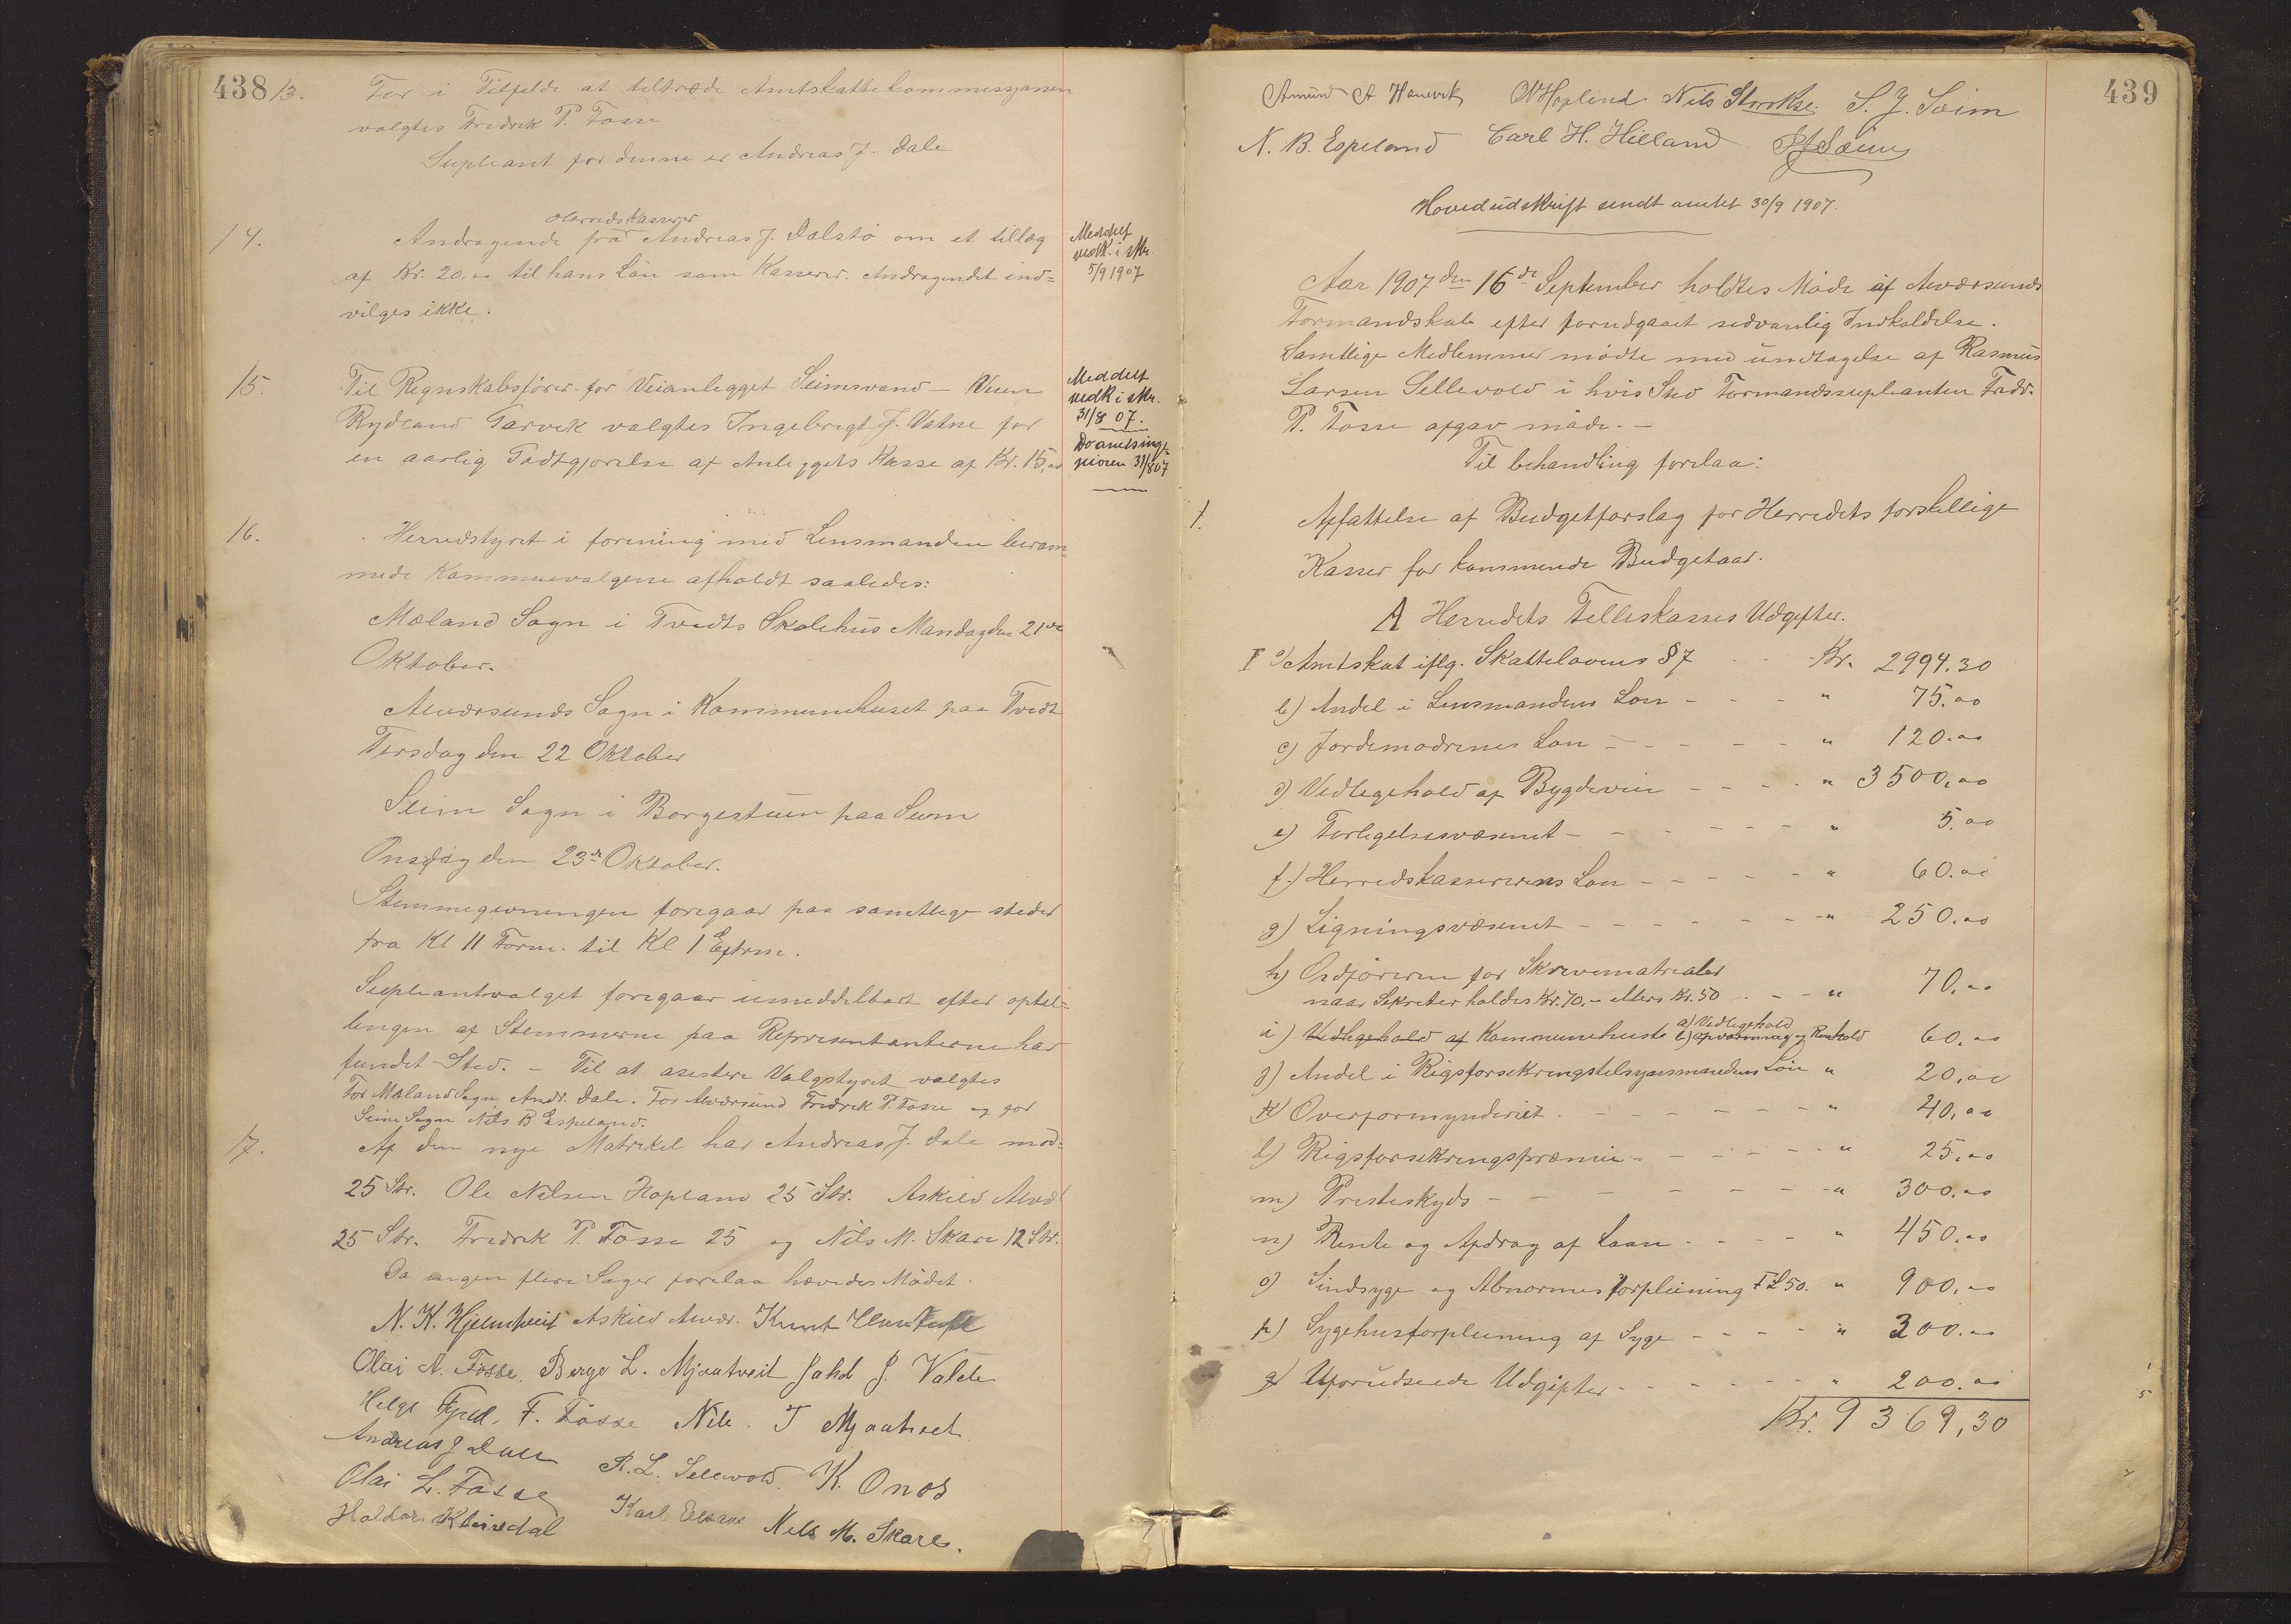 438
13. For i Tilfelde at tiltræde Amtskattekommissjonen
valgtes Fredrek P. Fosse
Supleant for denne er Andreas J. Dale
14. Andragende fra Herredskasserer Andreas J. Dalstø om et tillæg
af Kr. 20.00 til hans Løn som Kasserer. Andragendet ind=
vilges ikke.
Meddelt
vedk. i skr.
5/9 1907
15. Til Regnskabsfører for Veianlegget Seimsvand —
Rydland Tarvik valgtes Ingebrigt J. Vatne for
en aarlig Godtgjørelse af Anleggets Kasse af Kr. 15,00
Meddelt
vedk i skr.
31/8 07.
Do amtsinge
niøren 31/8 07
16. Herredstyret i forening med Lensmanden beram=
mede Kommunevalgene afholdt saaledes:
Mæland Sogn i Tvedts Skolehus Mandag den 21de
Oktober.
Alversunds Sogn i Kommunehuset paa Tvedt
Tirsdag den 22 Oktober
Seim Sogn i Borgestuen paa Seim
Onsdag den 23de Oktober.
Stemmegivningen foregaar paa samtlige steder
fra Kl 11 Form. til Kl 1 Eftrm.
Supleantvalget foregaar umiddelbart efter optel=
lingen af Stemmerne paa Representanterne har
fundet Sted. – Til at asestere Valgstyret valgtes
For Mæland Sogn Andr. Dale. For Alversund Fredrek P. Fosse og for
Seim Sogn Nils B Espeland.
17. Af den nye Matrikel har Andreas J. Dale mod=
25 Str. Ole Nilsen Hopland 25 Str. Askild Alvær
25 Str. Fredrek P. Fosse 25 og Nils M. Skare 12 Str.
Da ingen flere Sager forelaa hævedes Mødet.
N. K. Hjelmtveit Askild Alvær. Knut
Olai A. Fosse. Børge L. Mjaatveit Jakob J. Valde
Helge F. Fosse Nils J Mjaatveit
Andreas J Dale R. L. Sellevold. K. Onos
Olai L. Fosse Karl
Haldor Kleivdal Nils M. Skare.
439
Amund A Hanevik O N Hopland Nils S. J. Seim
N. B. Espeland Carl H. Hilland
Hovedudskrift sendt amtet 30/9 1907.
Aar 1907 den 16de September holdtes Møde af Alversunds
Formandskab efter forudgaaet sedvanlig Indkaldelse.
Samtlige Medlemmer mødte med undtagelse af Rasmus
Larsen Sellevold i hvis Sted Formandssupleanten Fredr.
P. Fosse afgav møde. –
Til behandling forelaa:
1. Affattelse af Budgetforslag for Herredets forskellige
Kasser for kommende Budgetaar.
A Herredets Felleskasses Udgifter.
I a) Amtskat iflg. Skattelovens § 7 - - Kr. 2994.30
b) Andel i Lensmandens Løn - - - " 75.00
c) Jordemodrenes Løn - - - - - " 120.00
d) Vedlegehold af Bygdeveie - - - - " 3500,00
e) Forligelsesvæsenet - - - - - - " 5.00
f) Herredskassererens Løn - - - - - " 60.00
g) Ligningsvæsenet - - - - - - " 250.00
h) Ordføreren for Skrivematrialer
naar Sekretær holdes Kr. 70.– ellers Kr. 50 - - - " 70.00
i) Vedlegehold af Kommunehuset a) Vedlegehold b) opvarmning og Renhold 60.00
j) Andel i Rigsforsekringstelsynsmandens Løn " 20.00
k) Overformynderiet - - - - - - - " 40,00
l) Rigsforsekringspræmie - - - - - - " 25.00
m) Presteskyds - - - - - - - " 300.00
n) Rente og Afdrag af Laan - - - - " 450.00
o) Sindsyge og Abnormes forpleining F L 50. " 900.00
p) Sygehusforpleining af Syge - - - - " 300.00
q) Uforudseede Udgifter - - - - - - " 200.00
Kr. 9369,30